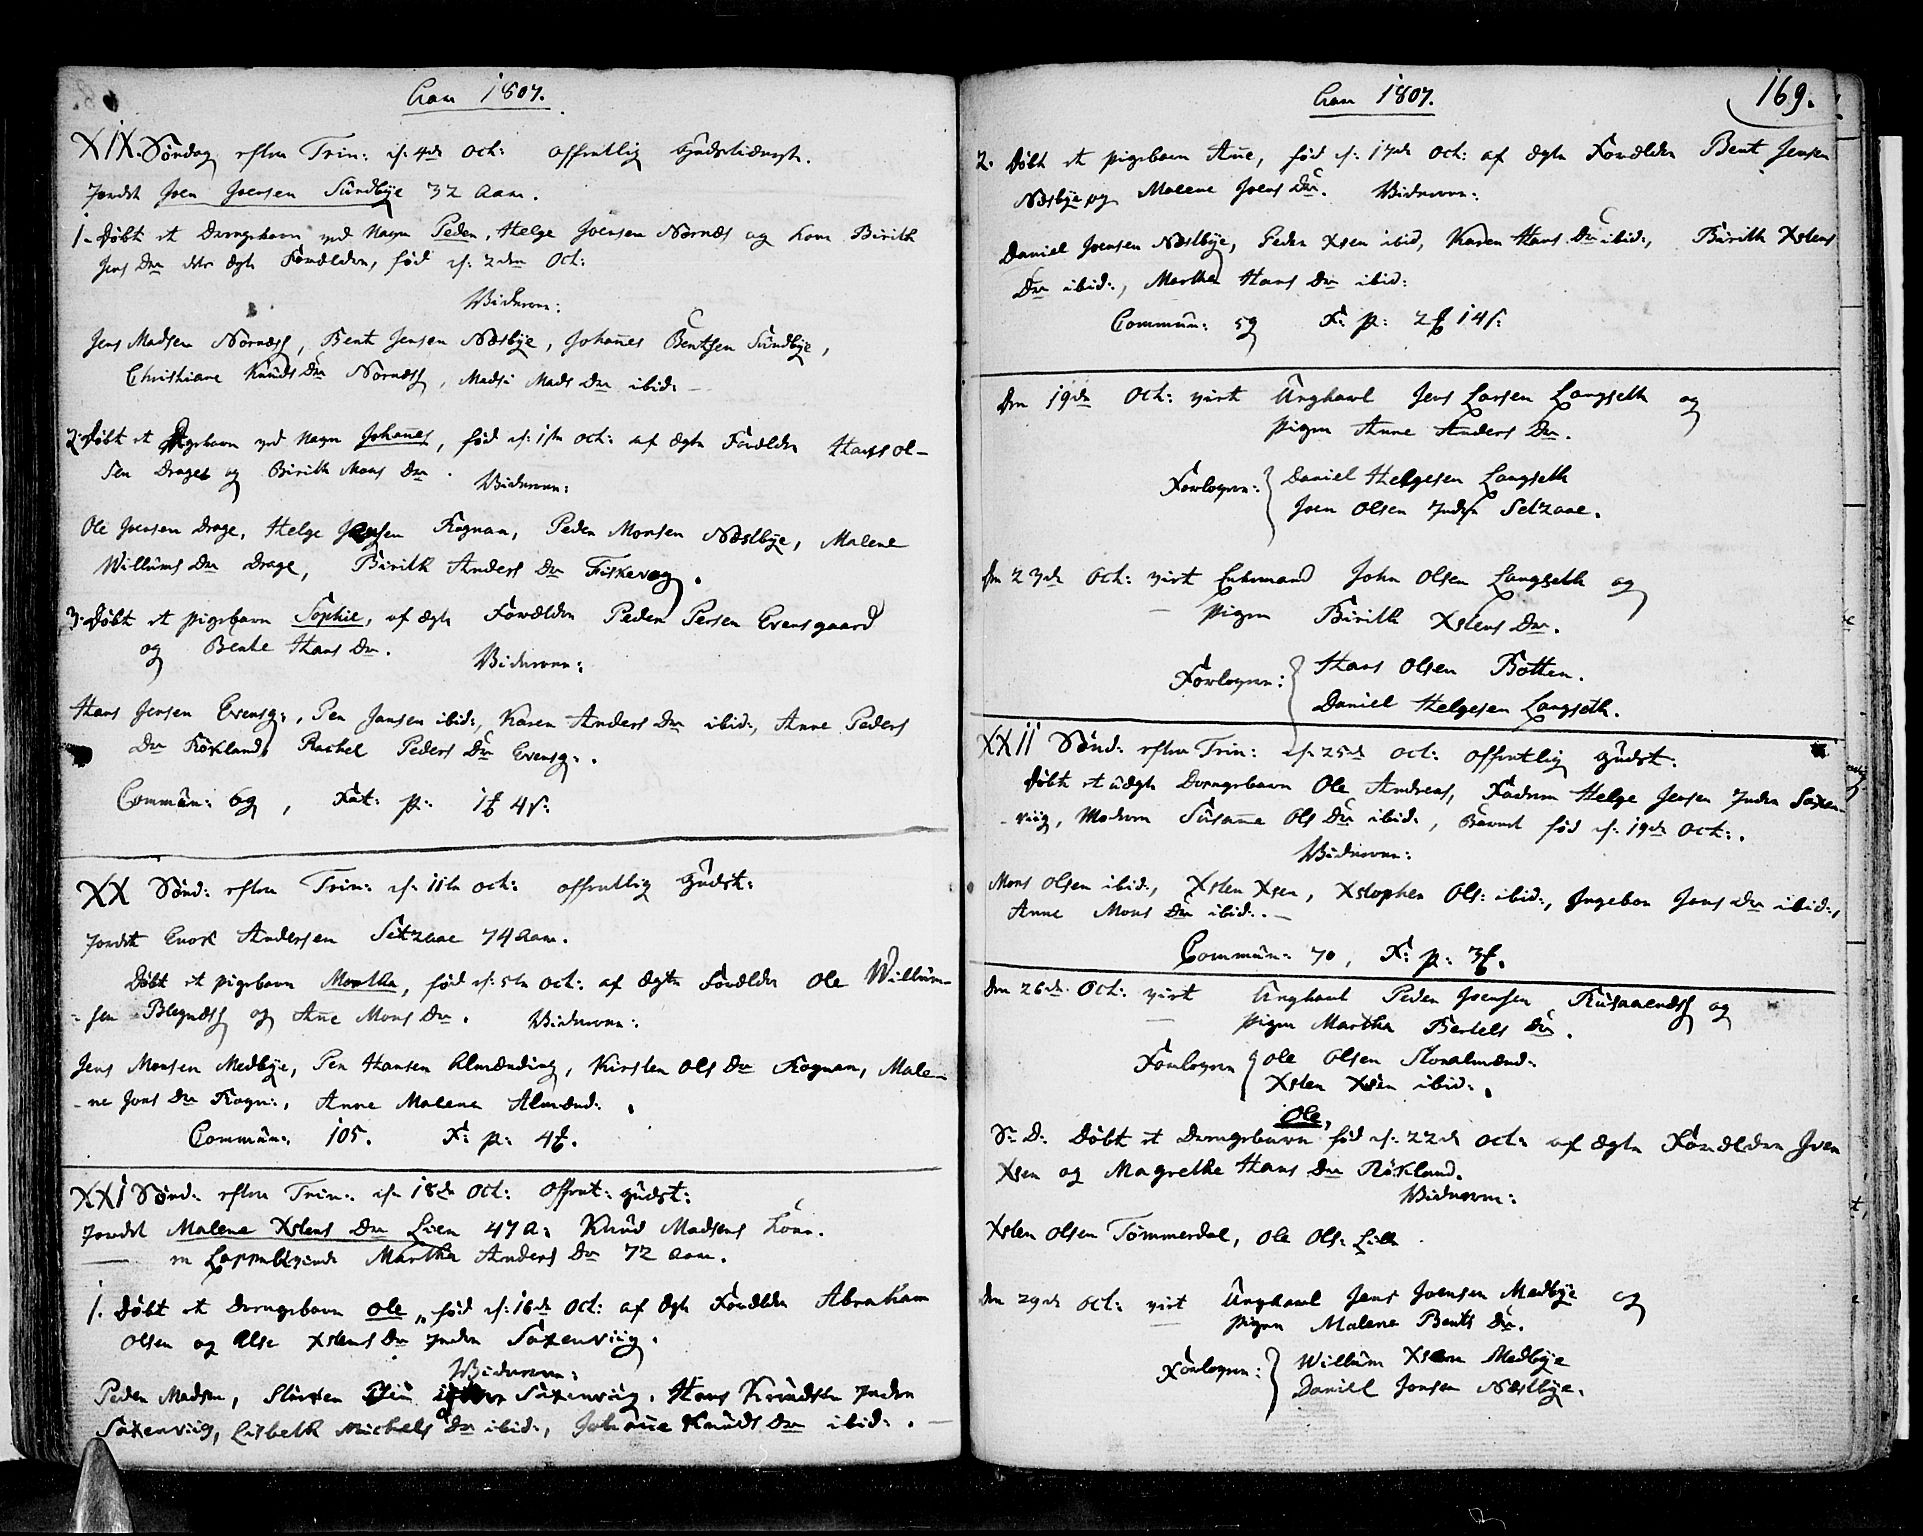 Aar 1807.
XIX. Søndag efter Trin: d: 4de Oct: offentlig Gudstienest.
Jordet Joen Joensen Sundbye 32 Aar.
1. Døbt et Drengebarn ved Nagn Peder, Helge Joensen Nornæs og Kone Birith
Jens Dtr dets ægte Forældre, fød d: 2den Oct:
Vidnerne:
Jens Madsen Nornæss, Bent Jensen Næsbye, Johañes Bentsen Sundbye,
Christiane Knuds Dtr Nornæss, Madsi Mads Dtr ibid:
2. Døbt et Pigebarn ved Nagn Johañes, fød d: 1ste Oct: af ægte Forældre Hans Ol-
sen Draget og Birith Mons Dtr.
Vidnerne:
Ole Joensen Drage, Helge Jensen Rognan, Peder Monsen Næstbye, Malene
Willums Dtr Drage, Birith Anders Dtr Fiskevog.
3. Døbt et pigebarn Sophie, af ægte Forældre Peder Persen Evensgaard
og Bente Hans Dtr.
Vidnerne:
Hans Jensen Evensg:, Per Jansen ibid:, Karen Anders Dtr ibid:, Anne Peders
Dtr Røkland, Rachel Peders Dtr Evensg:.
Commun: 69, Fat: p: 1 4s:
XX Sønd: efter Trin: d: 11te Oct: offentlig Gudst:
Jordet Enok Andersen Setzaae 74 Aar.
Døbt et pigebarn Martha, fød d: 5te Oct: af ægte Forældre Ole Willum-
sen Blegnæss og Añe Mons Dtr. Vidnerne:
Jens Monsen Medbye, Per Hansen Almænding, Kirsten Ols Dtr Rognan, Male-
ne Jons Dtr Rogn:, Anne Malene Almænd:.
Commun: 105. F: p: 4.
XXI Sønd: efter Trin: d: 18de Oct: offent: Gudst:
Jordet Malene Xstens Dtr Lien 47 A: Knud Madsens Kone.
en Martha Anders Dtr 72 Aar.
1. Døbt et Drengebarn Ole, fød d: 16de Oct: af ægte Forældre Abraham
Olsen og Else Xstens Dtr Indre Saxenviig.
Vidnerne:
Peder Madsen, Saxenviig, Hans Knudsen Indre
Saxenviig, Lisbeth Michels Dtr ibid:, Johañe Knuds Dtr ibid:.
Aar 1807.
169.
2. Døbt et pigebarn Añe, fød d: 17de Oct: af ægte Forældre Bent Jensen
Næsbye og Malene Joens Dtr. Vidnerne:
Daniel Joensen Næstbye, Peder Xsen ibid, Karen Hans Dtr ibid:, Birith Xstens
Dtr ibid:, Martha Hans Dtr ibid:
Commun: 59 F: p: 2 14s:
Den 19de Oct: viet Ungkarl Jens Larsen Langseth og
pigen Anne Anders Dtr.
Forlovere: Daniel Helgesen Langseth
Joen Olsen Indre Setzaae.
Den 23de Oct: viet Enkemand John Olsen Langseth og
pigen Birith Xstens Dtr.
Forlovere: Hans Olsen Botten.
Daniel Helgesen Langseth.
XXII Sønd: efter Trin: d: 25de Oct: offentlig Gudst:
Døbt et uægte Drengebarn Ole Andreas, Faderen Helge Jensen Indre Saxen-
viig, Moderen Susanne Ols Dtr ibid:, Barnet fød d: 19de Oct:.
Vidnerne:
Mons Olsen ibid:, Xsten Xsen, Xstopher Ols: ibid:, Ingebor Jens Dtr ibid:,
Anne Mons Dtr ibid:.
Commun: 70, F: p: 3.
Den 26de Oct: viet Ungkarl Peder Joensen Rusaaenæss og
pigen Martha Bertels Dtr.
Forlovere Ole Olsen Storalmænd:
Xsten Xsen ibid:.
S: D: Døbt et Drengebarn Ole, fød d: 22de Oct: af ægte Forældre Iver
Xsen og Magrethe Hans Dtr Røkland.
Vidnerne:
Xsten Olsen Tømmerdal, Ole Ols: Lille
Den 29de Oct: viet Ungkarl Jens Joensen Medbye og
pigen Malene Bents Dtr.
Forlovere: Willum Xsen Medbye
Daniel Jonsen Næstbye.